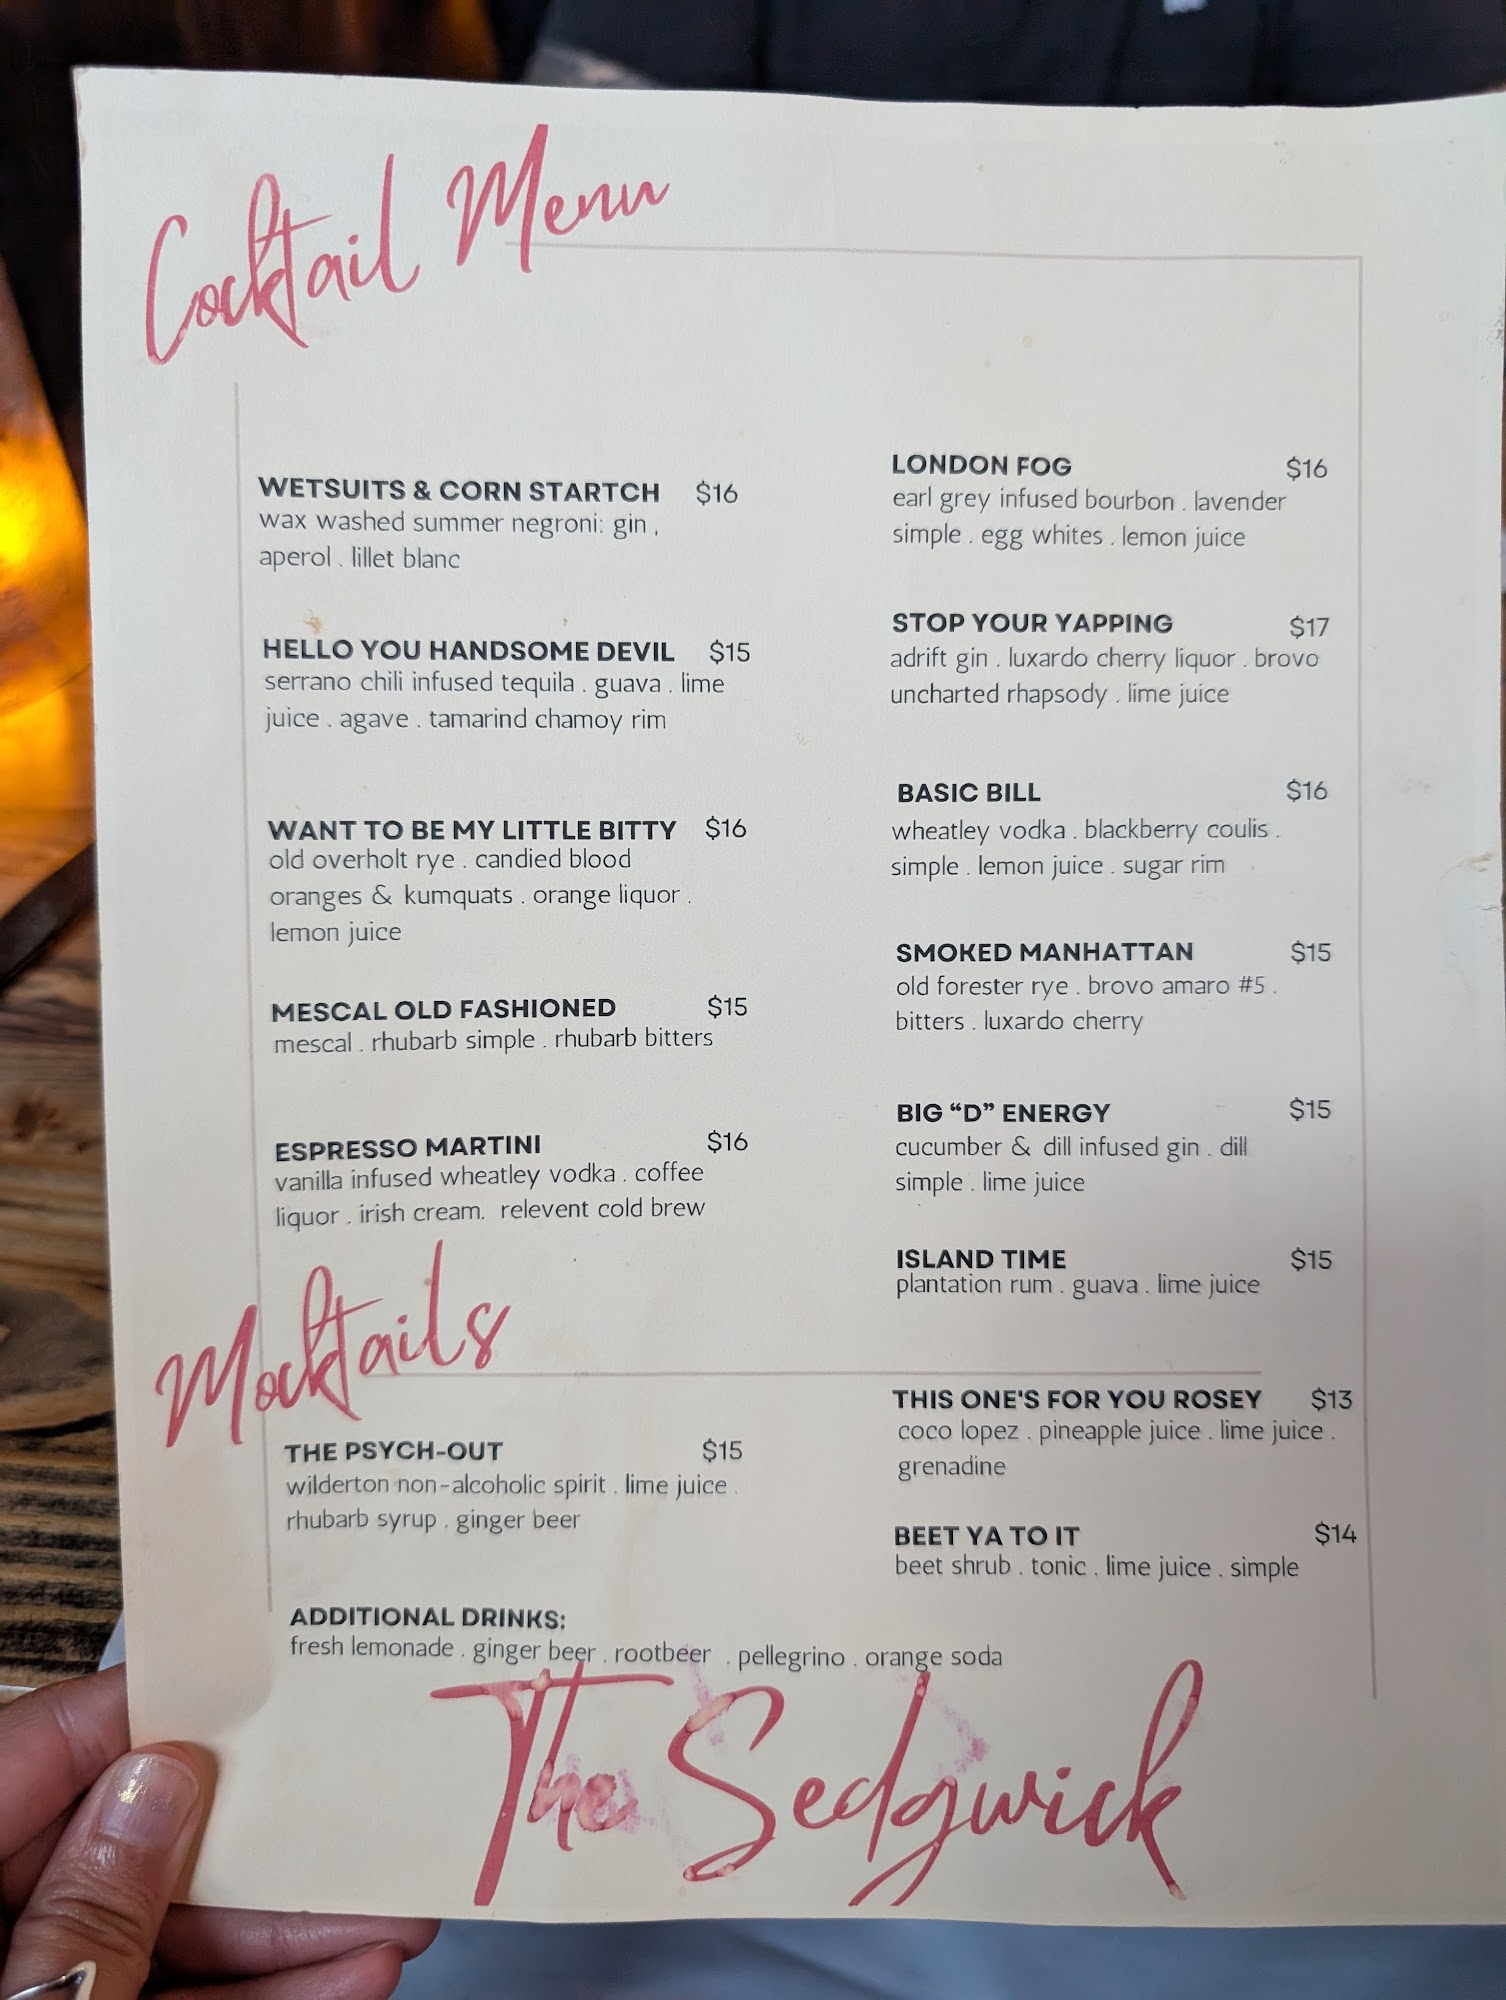 Cocktail Menu
WETSUITS & CORN STARTCH $16
wax washed summer negroni: gin ,
aperol . lillet blanc
HELLO YOU HANDSOME DEVIL $15
serrano chili infused tequila . guava . lime
juice . agave . tamarind chamoy rim
WANT TO BE MY LITTLE BITTY $16
old overholt rye . candied blood
oranges & kumquats . orange liquor .
lemon juice
MESCAL OLD FASHIONED $15
mescal . rhubarb simple . rhubarb bitters
ESPRESSO MARTINI $16
vanilla infused wheatley vodka . coffee
liquor . irish cream. relevent cold brew
LONDON FOG $16
earl grey infused bourbon . lavender
simple . egg whites . lemon juice
STOP YOUR YAPPING $17
adrift gin . luxardo cherry liquor . brovo
uncharted rhapsody . lime juice
BASIC BILL $16
wheatley vodka . blackberry coulis .
simple . lemon juice . sugar rim
SMOKED MANHATTAN $15
old forester rye . brovo amaro #5 .
bitters . luxardo cherry
BIG “D” ENERGY $15
cucumber & dill infused gin . dill
simple . lime juice
ISLAND TIME $15
plantation rum . guava . lime juice
Mocktails
THE PSYCH-OUT $15
wilderton non-alcoholic spirit . lime juice .
rhubarb syrup . ginger beer
THIS ONE'S FOR YOU ROSEY $13
coco lopez . pineapple juice . lime juice .
grenadine
BEET YA TO IT $14
beet shrub . tonic . lime juice . simple
ADDITIONAL DRINKS:
fresh lemonade . ginger beer . rootbeer . pellegrino . orange soda
The Sedgwick